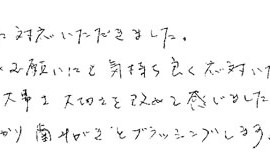 に対応いただきました。
お願いにも気持ち良く応対いた
大事さ大切さを改めて感じました
かり歯みがきとブラッシングします。